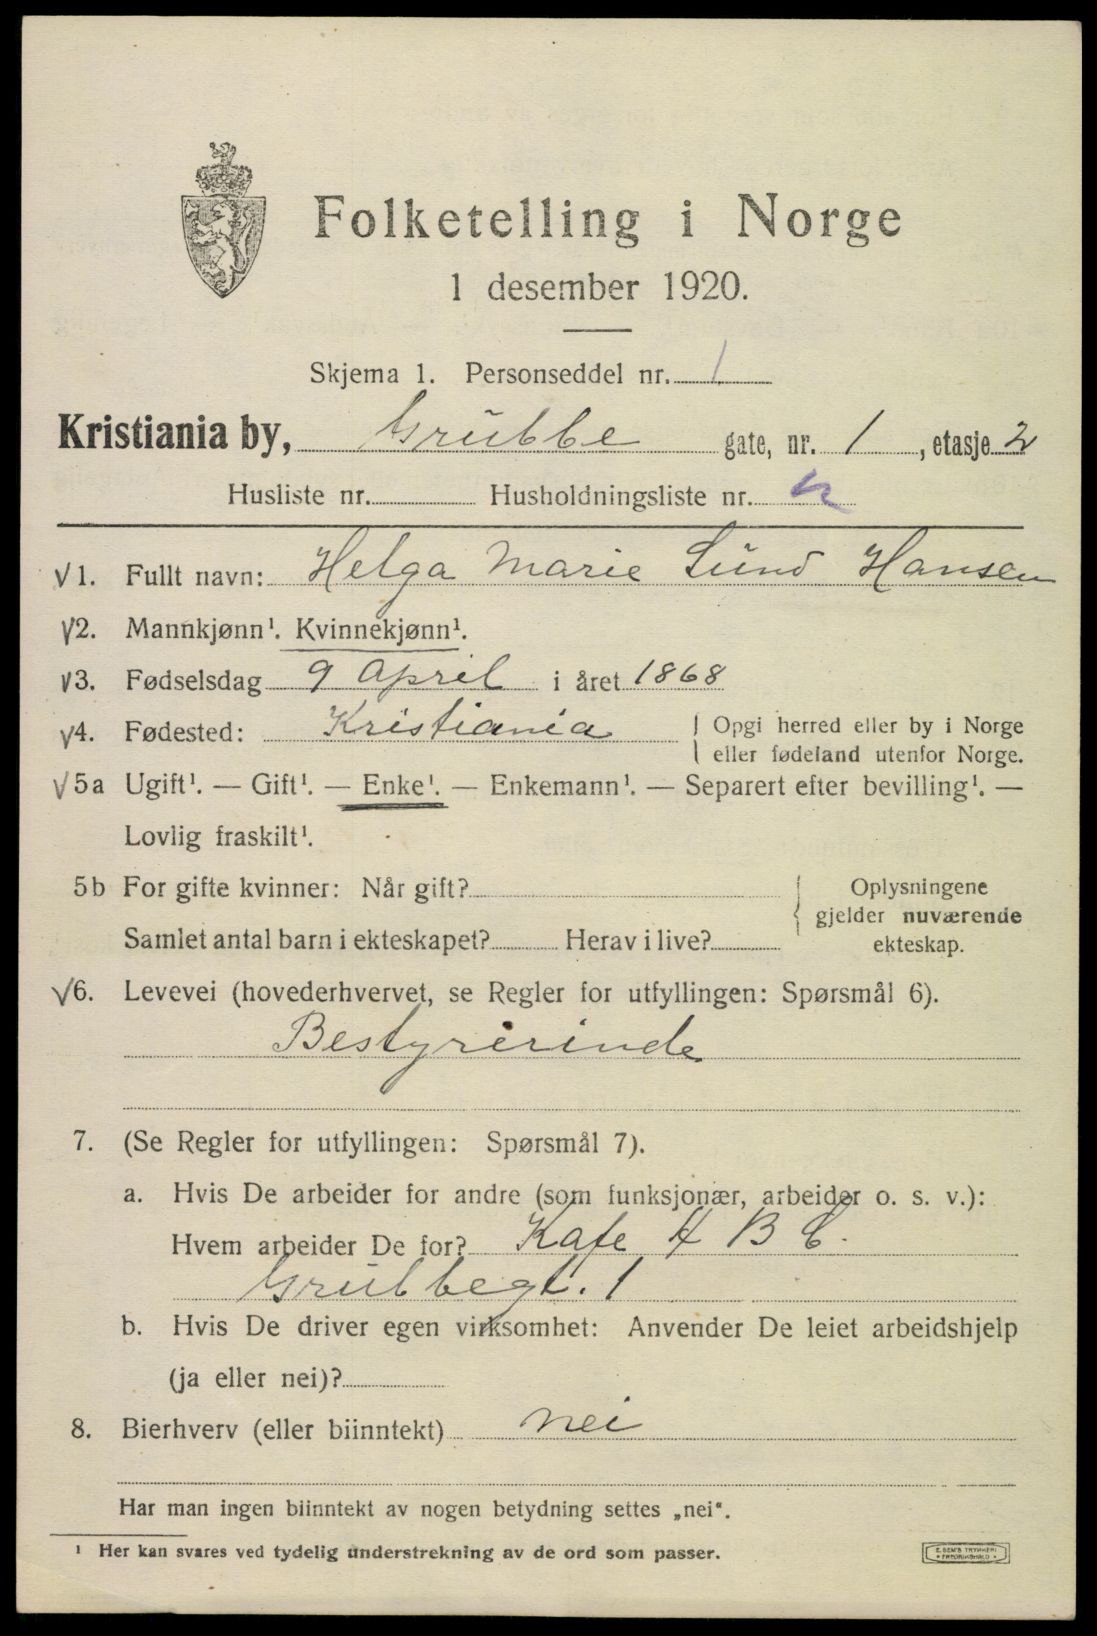 Folketelling i Norge
1 desember 1920.
Skjema 1. Personseddel nr. 1
Kristiania by, Grübbe gate, nr. 1, etasje 2
Husliste nr. Husholdningsliste nr.
√1. Fullt navn: Helga Marie Lünd Hansen
√2. Mannkjønn¹. Kvinnekjønn¹.
√3. Fødselsdag 9 April i året 1868
√4. Fødested: Kristiania Opgi herred eller by i Norge
eller fødeland utenfor Norge.
√5a Ugift¹. — Gift¹. — Enke¹. — Enkemann¹. — Separert efter bevilling¹. —
Lovlig fraskilt¹.
5b For gifte kvinner: Når gift? Oplysningene
gjelder nuværende
Samlet antal barn i ekteskapet? Herav i live? ekteskap.
√6. Levevei (hovederhvervet, se Regler for utfyllingen: Spørsmål 6).
Bestyrerinde
7. (Se Regler for utfyllingen: Spørsmål 7).
a. Hvis De arbeider for andre (som funksjonær, arbeider o. s. v.):
Hvem arbeider De for? Kafe A B C.
Grübbegt. 1
b. Hvis De driver egen virksomhet: Anvender De leiet arbeidshjelp
(ja eller nei)?
8. Bierhverv (eller biinntekt) nei
Har man ingen biinntekt av nogen betydning settes „nei“.
¹ Her kan svares ved tydelig understrekning av de ord som passer.
E. SEM'S TRYKKERI
• FREDRIKSHALD •